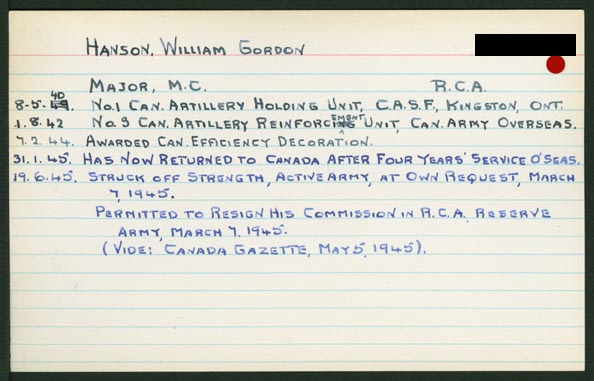 HANSON, WILLIAM GORDON
MAJOR, M.C. R.C.A.
8-5-40. NO.1 CAN. ARTILLERY HOLDING UNIT, C.A.S.F., KINGSTON, ONT.
1.8.42 NO.3 CAN. ARTILLERY REINFORCEMENT UNIT, CAN. ARMY OVERSEAS.
7.2.44. AWARDED CAN. EFFICIENCY DECORATION.
31.1.45. HAS NOW RETURNED TO CANADA AFTER FOUR YEARS' SERVICE O'SEAS.
19.6.45. STRUCK OFF STRENGTH, ACTIVE ARMY, AT OWN REQUEST, MARCH
7, 1945.
PERMITTED TO RESIGN HIS COMMISSION IN R.C.A. RESERVE
ARMY, MARCH 7, 1945.
(VIDE: CANADA GAZETTE, MAY 5, 1945).